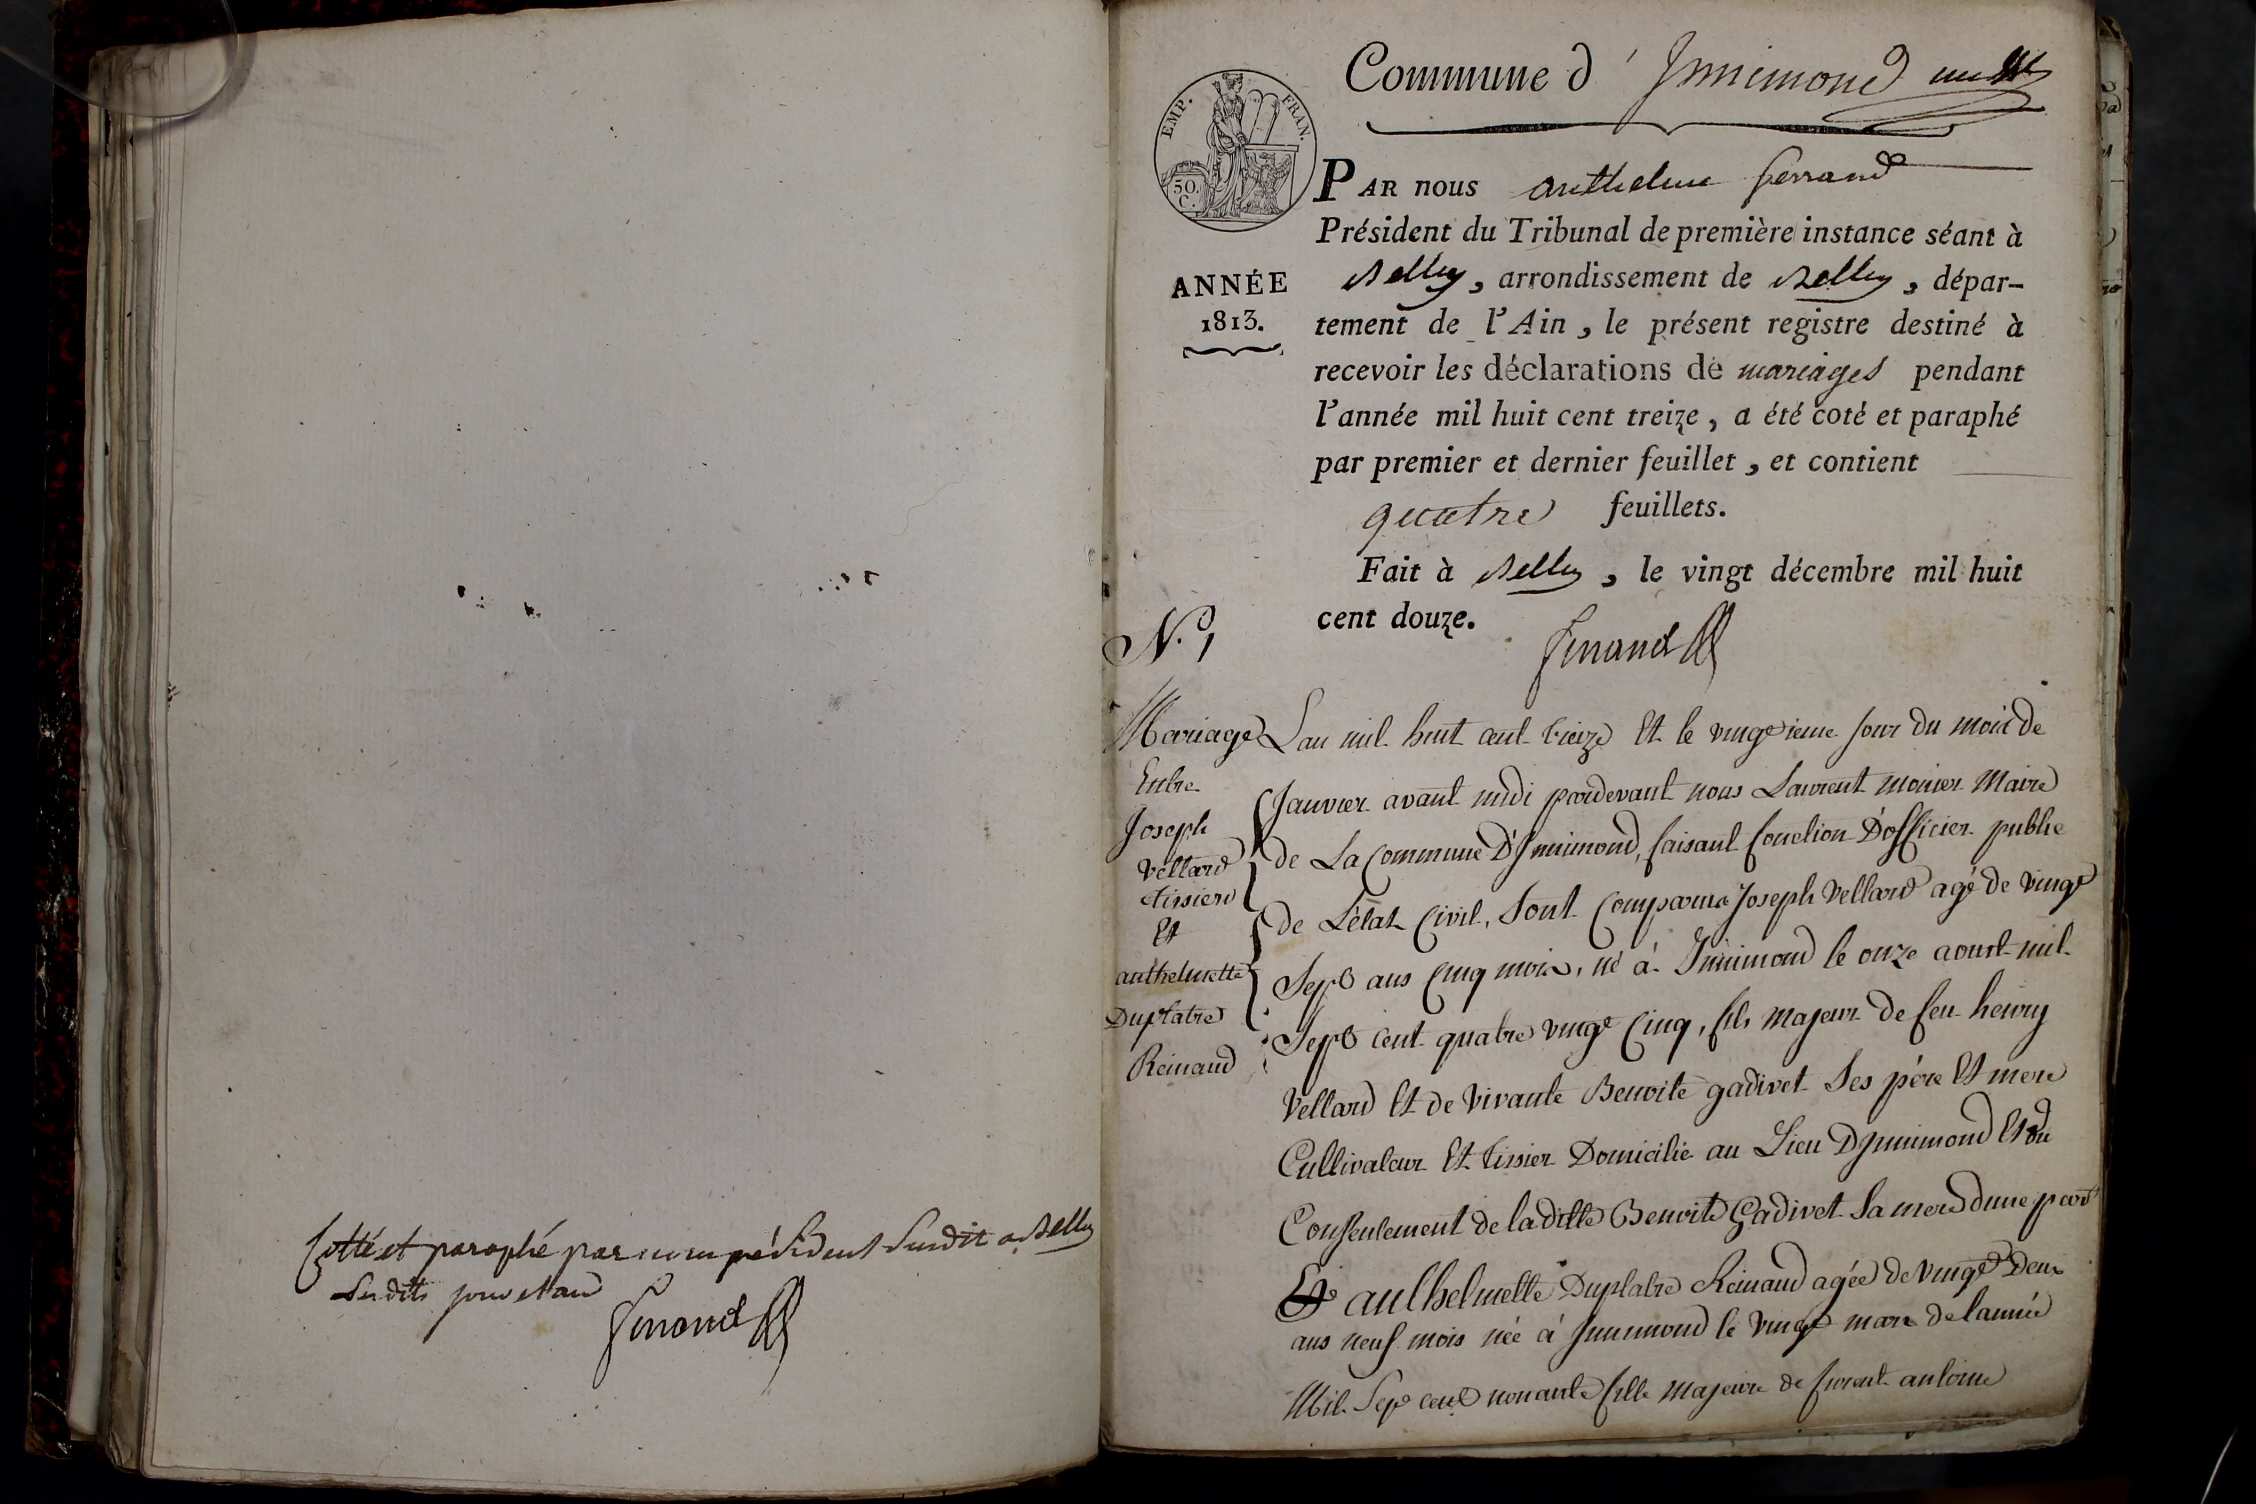 Cotté et paraphé par nous président susdit a Belley
susdits jour et an
Ferrand
Commune d'Innimond
EMP. FRAN.
50.
C.
PAR nous anthelme ferrand
Président du Tribunal de première instance séant à
ANNÉE
1813.
Belley, arrondissement de Belley, dépar-
tement de l'Ain, le présent registre destiné à
recevoir les déclarations de mariages pendant
l'année mil huit cent treize, a été coté et paraphé
par premier et dernier feuillet, et contient
quatre feuillets.
Fait à Belley, le vingt décembre mil huit
cent douze.
Ferrand
N.º 1
Mariage
Entre
Joseph
Vellard
tissier
Et
anthelmette
Duplatre
Reinaud
Lan mil huit cent treize Et le vingtieme jour du mois de
Janvier avant midi pardevant nous Laurent monier Maire
de La Commune D'Innimond, faisant fonction D'officier public
de L'état Civil, Sont Comparus Joseph Vellard agé de vingt
Sept ans Cinq mois, né á Innimond le onze aoust mil
Sept cent quatre vingt Cinq, fils majeur de feu henry
Vellard Et de vivante Benoite gadivet Ses père Et mere
Cultivateur Et tissier Domicilié au Lieu D'Innimond Et du
Consentement de la ditte Benoite Gadivet Sa mere dune part
Et anthelmette Duplatre Reinaud agée de vingt Deux
ans neuf mois née á Innimond le vingt mars de lannée
Mil Sept cent nonante fille majeure de antoine